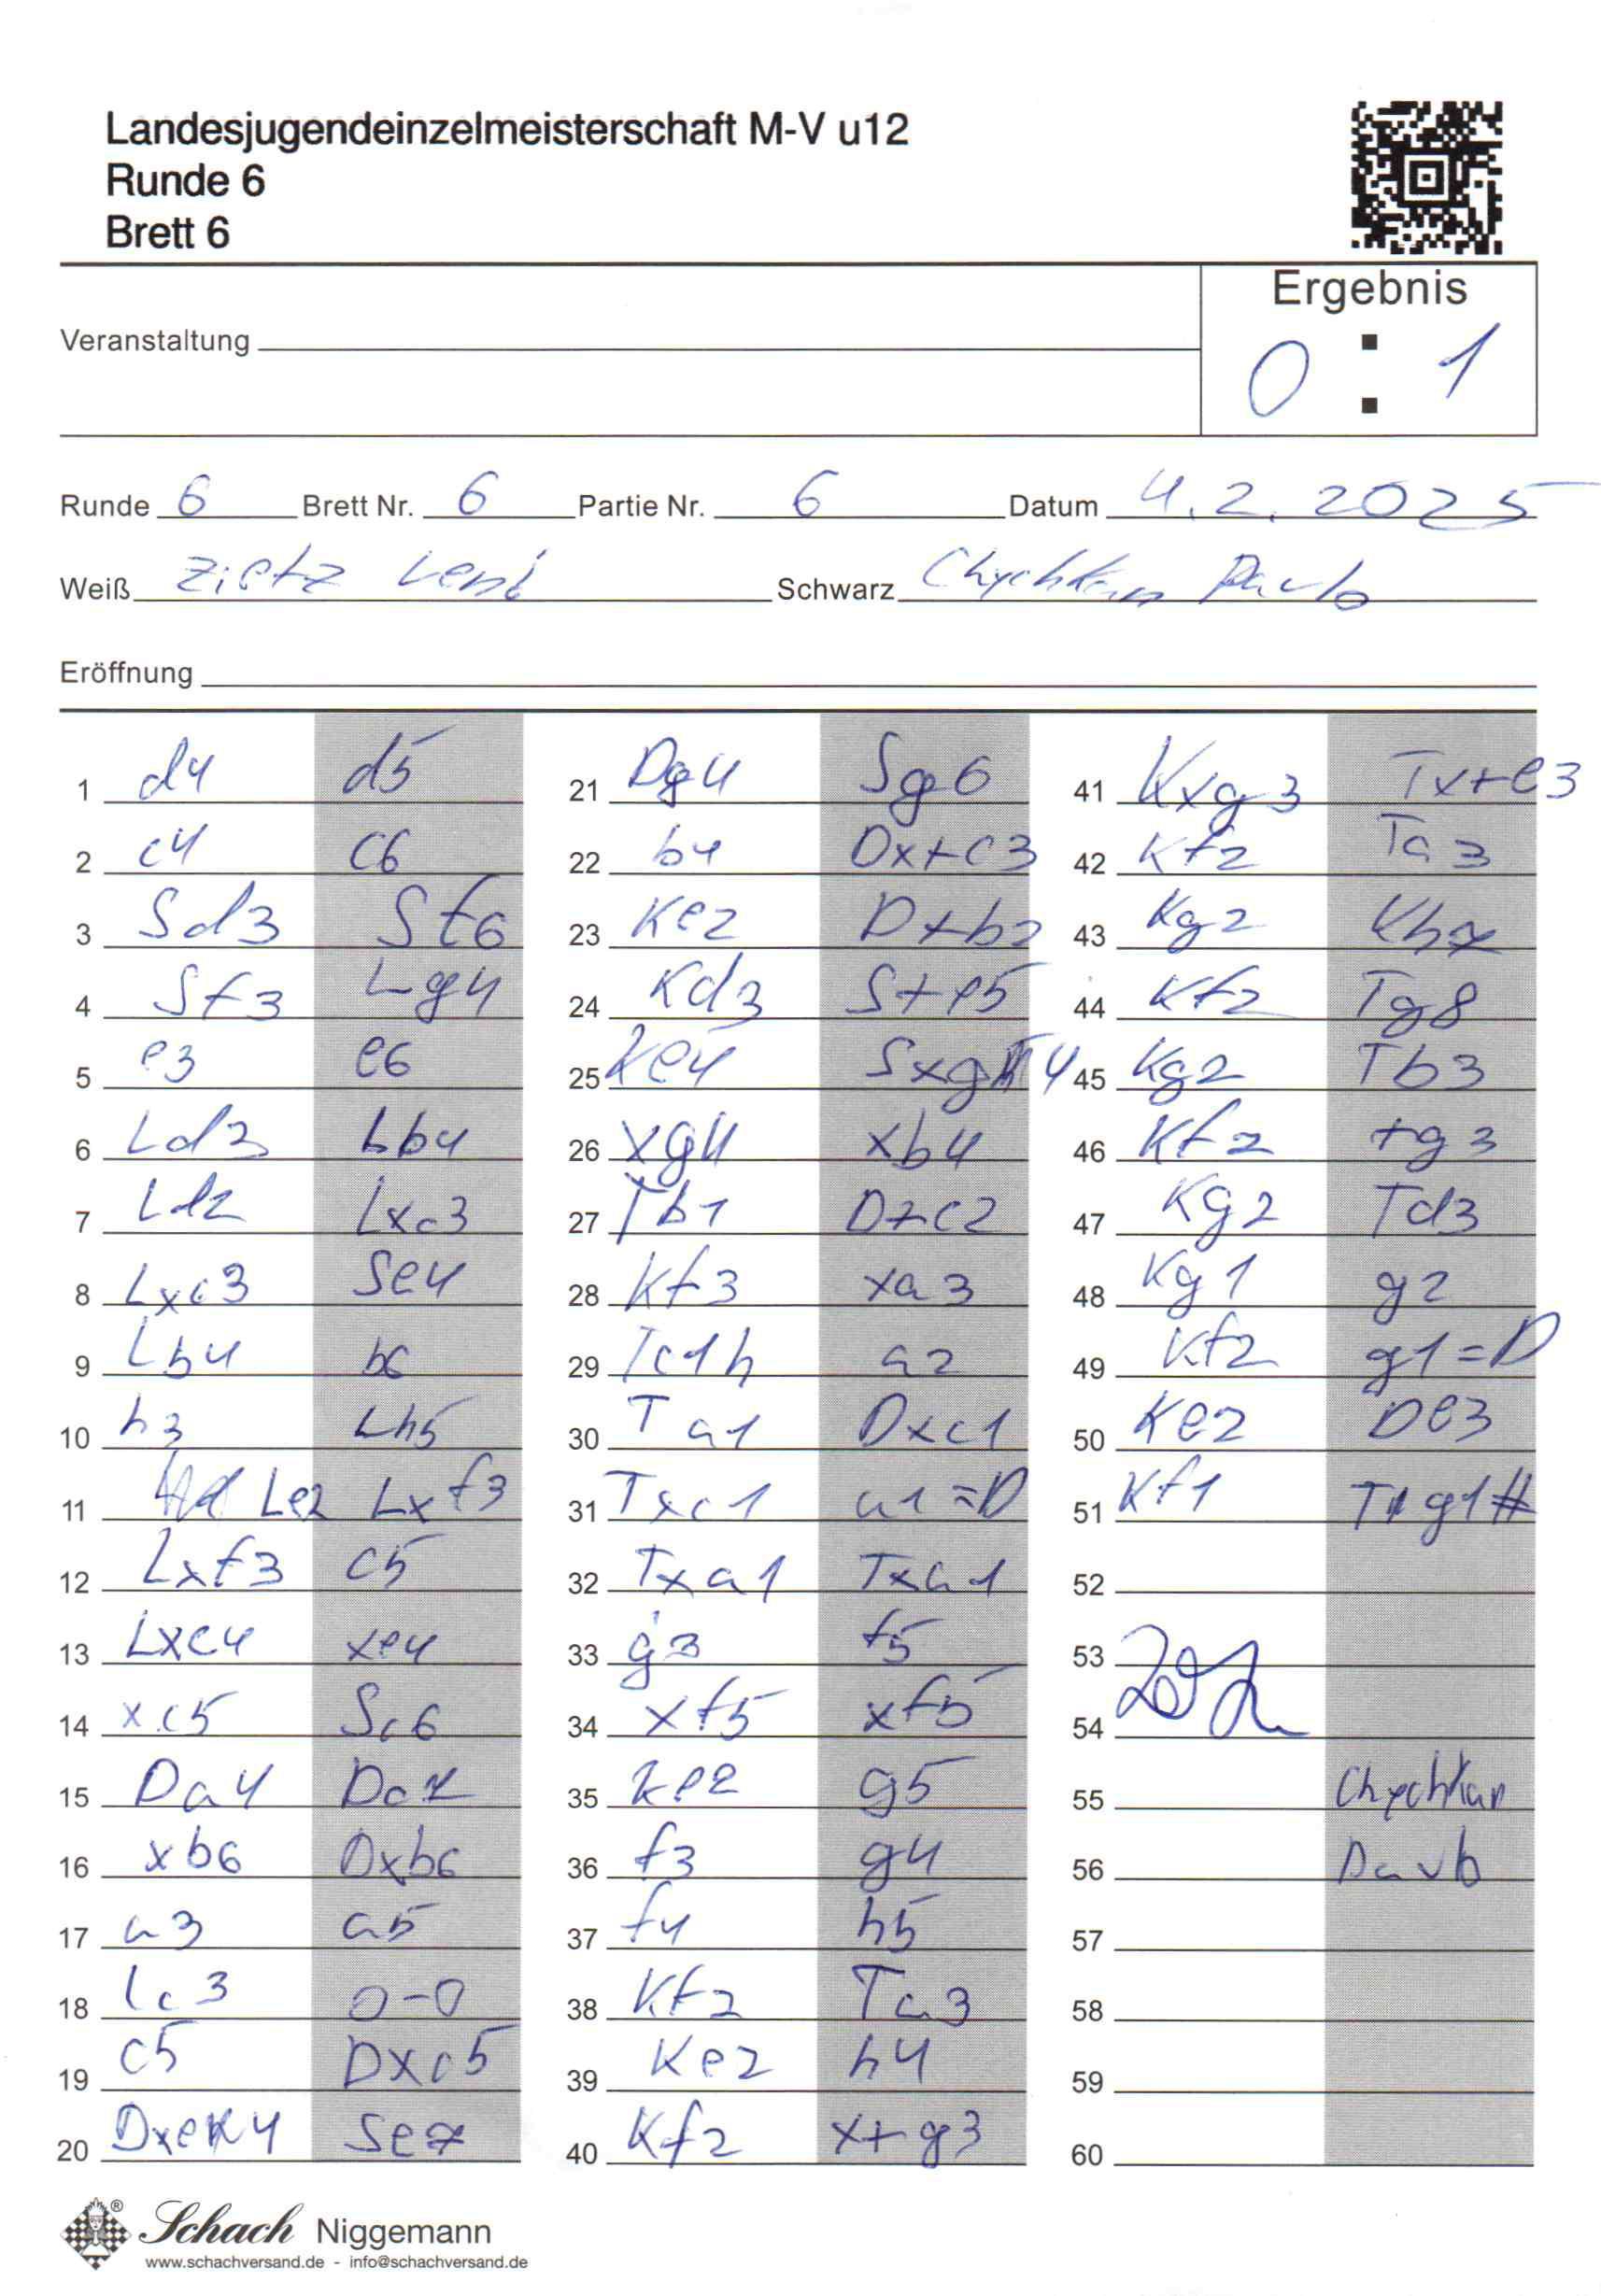 Landesjugendeinzelmeisterschaft M-V u12
Runde 6
Brett 6
Ergebnis
0 : 1
Veranstaltung
Runde 6 Brett Nr. 6 Partie Nr. 6 Datum 4.2.2025
Weiß Zietz Leni Schwarz Chychkan Pavlo
Eröffnung
1 d4 d5
2 c4 c6
3 Sd3 Sf6
4 Sf3 Lg4
5 e3 e6
6 Ld3 Lb4
7 Ld2 Lxc3
8 Lxc3 Se4
9 Lb4 b6
10 h3 Lh5
11 Le2 Lxf3
12 Lxf3 c5
13 Lxe4 xe4
14 xc5 Sc6
15 Da4 Dc7
16 xb6 Dxb6
17 a3 a5
18 Lc3 0-0
19 c5 Dxc5
20 Dxe4 Se7
21 Dg4 Sg6
22 b4 Dx+c3
23 Ke2 D+b2
24 Kd3 S+e5
25 Ke4 Sxg4
26 xg4 xb4
27 Tb1 D+c2
28 Kf3 xa3
29 Tc1h a2
30 Ta1 Dxc1
31 Txc1 a1=D
32 Txa1 Txa1
33 g3 f5
34 xf5 xf5
35 Ke2 g5
36 f3 g4
37 f4 h5
38 Kf2 Ta3
39 Ke2 h4
40 Kf2 x+g3
41 Kxg3 Tx+e3
42 Kf2 Ta3
43 Kg2 Kh7
44 Kf2 Tg8
45 Kg2 Tb3
46 Kf2 +g3
47 Kg2 Td3
48 Kg1 g2
49 Kf2 g1=D
50 Ke2 De3
51 Kf1 Tg1#
52
53
54
55 Chychkan
56 Pavlo
57
58
59
60
® Schach Niggemann
www.schachversand.de - info@schachversand.de